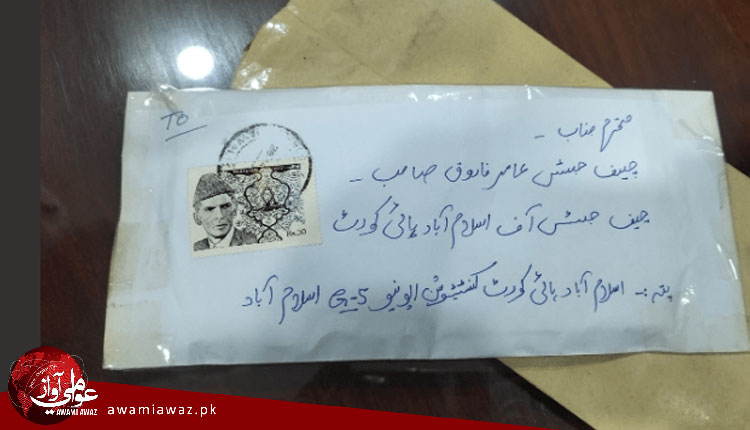 TO
محترم جناب -
چیف جسٹس عامر فاروق صاحب -
چیف جسٹس آف اسلام آباد ہائی کورٹ
پتہ :- اسلام آباد ہائی کورٹ کنسٹیٹیوشن ایونیو G-5 اسلام آباد
Rs.20
عوامی آواز
AWAMI AWAZ
awamiawaz.pk